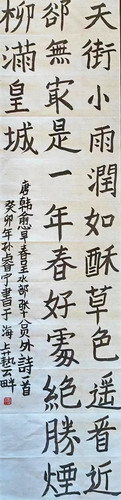 天街小雨潤如酥草色遥看近
卻無最是一年春好處絕勝煙
柳滿皇城
唐韓愈早春呈水部張十八員外詩首
癸卯年孫睿宁書于海上藝雲畔